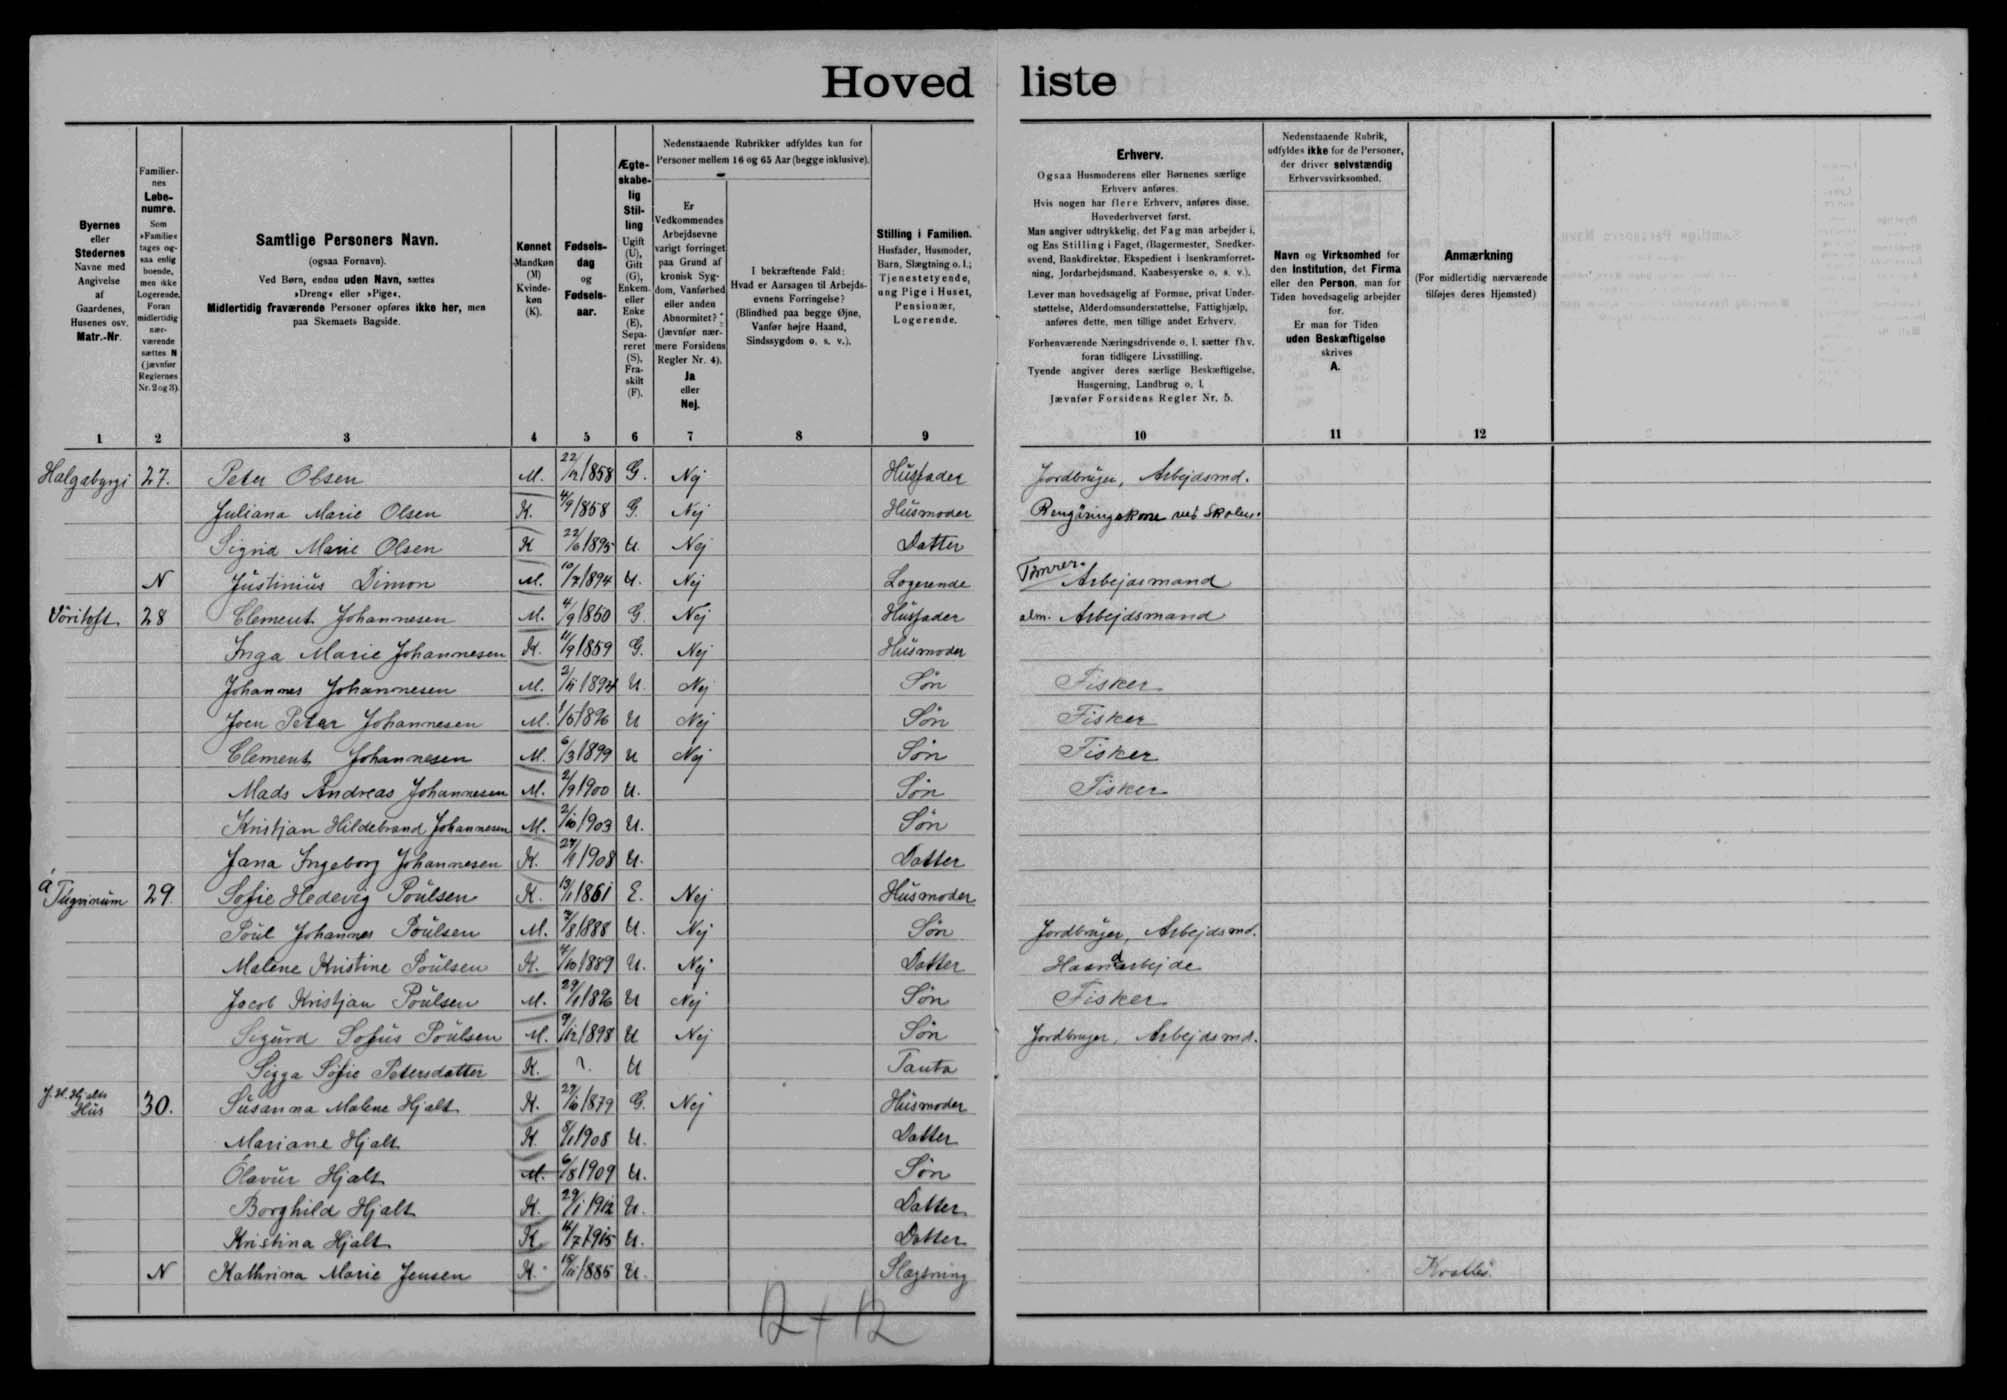 Hovedliste
Byernes eller Stedernes Navne med Angivelse af Gaardenes, Husenes osv. Matr.-Nr.
Familiernes Løbenumre. Som »Familie« tages ogsaa enlig boende, men ikke Logerende. Foran midlertidig nærværende sættes N (jævnfør Reglernes Nr. 2 og 3).
Samtlige Personers Navn.
(ogsaa Fornavn).
Ved Børn, endnu uden Navn, sættes
»Dreng« eller »Pige«.
Midlertidig fraværende Personer opføres ikke her, men
paa Skemaets Bagside.
Kønnet Mandkøn (M) Kvindekøn (K).
Fødselsdag og Fødselsaar.
Ægteskabelig Stilling Ugift (U), Gift (G), Enkem. eller Enke (E), Separeret (S), Fraskilt (F).
Nedenstaaende Rubrikker udfyldes kun for
Personer mellem 16 og 65 Aar (begge inklusive).
Er Vedkommendes Arbejdsevne varigt forringet paa Grund af kronisk Sygdom, Vanførhed eller anden Abnormitet? (Jævnfør nærmere Forsidens Regler Nr. 4). Ja eller Nej.
I bekræftende Fald: Hvad er Aarsagen til Arbejdsevnens Forringelse? (Blindhed paa begge Øjne, Vanfør højre Haand, Sindssygdom o. s. v.).
Stilling i Familien. Husfader, Husmoder, Barn, Slægtning o. l.; Tjenestetyende, ung Pige i Huset, Pensionær, Logerende.
Erhverv.
Ogsaa Husmoderens eller Børnenes særlige
Erhverv anføres.
Hvis nogen har flere Erhverv, anføres disse,
Hovederhvervet først.
Man angiver udtrykkelig, det Fag man arbejder i,
og Ens Stilling i Faget, (Bagermester, Snedker-
svend, Bankdirektør, Ekspedient i Isenkramforret-
ning, Jordarbejdsmand, Kaabesyerske o. s. v.).
Lever man hovedsagelig af Formue, privat Under-
støttelse, Alderdomsunderstøttelse, Fattighjælp,
anføres dette, men tillige andet Erhverv.
Forhenværende Næringsdrivende o. l. sætter fhv.
foran tidligere Livsstilling.
Tyende angiver deres særlige Beskæftigelse,
Husgerning, Landbrug o. l.
Jævnfør Forsidens Regler Nr. 5.
Nedenstaaende Rubrik,
udfyldes ikke for de Personer,
der driver selvstændig
Erhvervsvirksomhed.
Navn og Virksomhed for
den Institution, det Firma
eller den Person, man for
Tiden hovedsagelig arbejder
for.
Er man for Tiden
uden Beskæftigelse
skrives
A.
Anmærkning
(For midlertidig nærværende
tilføjes deres Hjemsted)
1 2 3 4 5 6 7 8 9 10 11 12
Halgabyrgi 27. Peter Olsen M. 22/12 1858 G. Nej Husfader Jordbruger, Arbejdsmd.
Juliana Marie Olsen K. 4/9 1858 G. Nej Husmoder Rengöringskone ved Skolen.
Sigrid Marie Olsen K 22/6 1895 U. Nej Datter
N Justinius Dimon M. 10/7 1894 U. Nej Logerende Tömrer. Arbejdsmand
Vöritoft 28 Clement Johannesen M. 4/9 1850 G. Nej Husfader alm. Arbejdsmand
Inga Marie Johannesen K. 11/9 1859 G. Nej Husmoder
Johannes Johannesen M. 2/11 1894 U. Nej Søn Fisker
Joen Peter Johannesen M. 1/5 1896 U Nej Søn Fisker
Clement Johannesen M. 6/3 1899 U Nej Søn Fisker
Mads Andreas Johannesen M. 2/9 1900 U. Søn Fisker
Kristjan Hildebrand Johannesen M. 2/10 1903 U. Søn
Jana Ingeborg Johannesen K. 1908 U. Datter
á 29. Sofie Hedevig Poulsen K. 13/1 1861 E. Nej Husmoder
Poul Johannes Poulsen M. 1888 U. Nej Søn Jordbruger, Arbejdsmd.
Malene Kristine Poulsen K. 4/10 1889 U. Nej Datter Haandarbejde
Jacob Kristjan Poulsen M. 29/1 1896 U Nej Søn Fisker
Sigurd Sofus Poulsen M. 9/12 1898 U Nej Søn Jordbruger, Arbejdsmd.
Sigga Sofie Petersdatter K. ?. U Tanta
J. H. Hjalts Hus 30. Susanna Malene Hjalt K. 29/10 1879 G. Nej Husmoder
Mariane Hjalt K. 8/1 1908 U. Datter
Ólavur Hjalt M. 6/8 1909 U. Søn
Borghild Hjalt K. 29/1 1912 U. Datter
Kristina Hjalt K 1915 U. Datter
N Kathrina Marie Jensen K. 1885 U. Slægtning
12 + 12